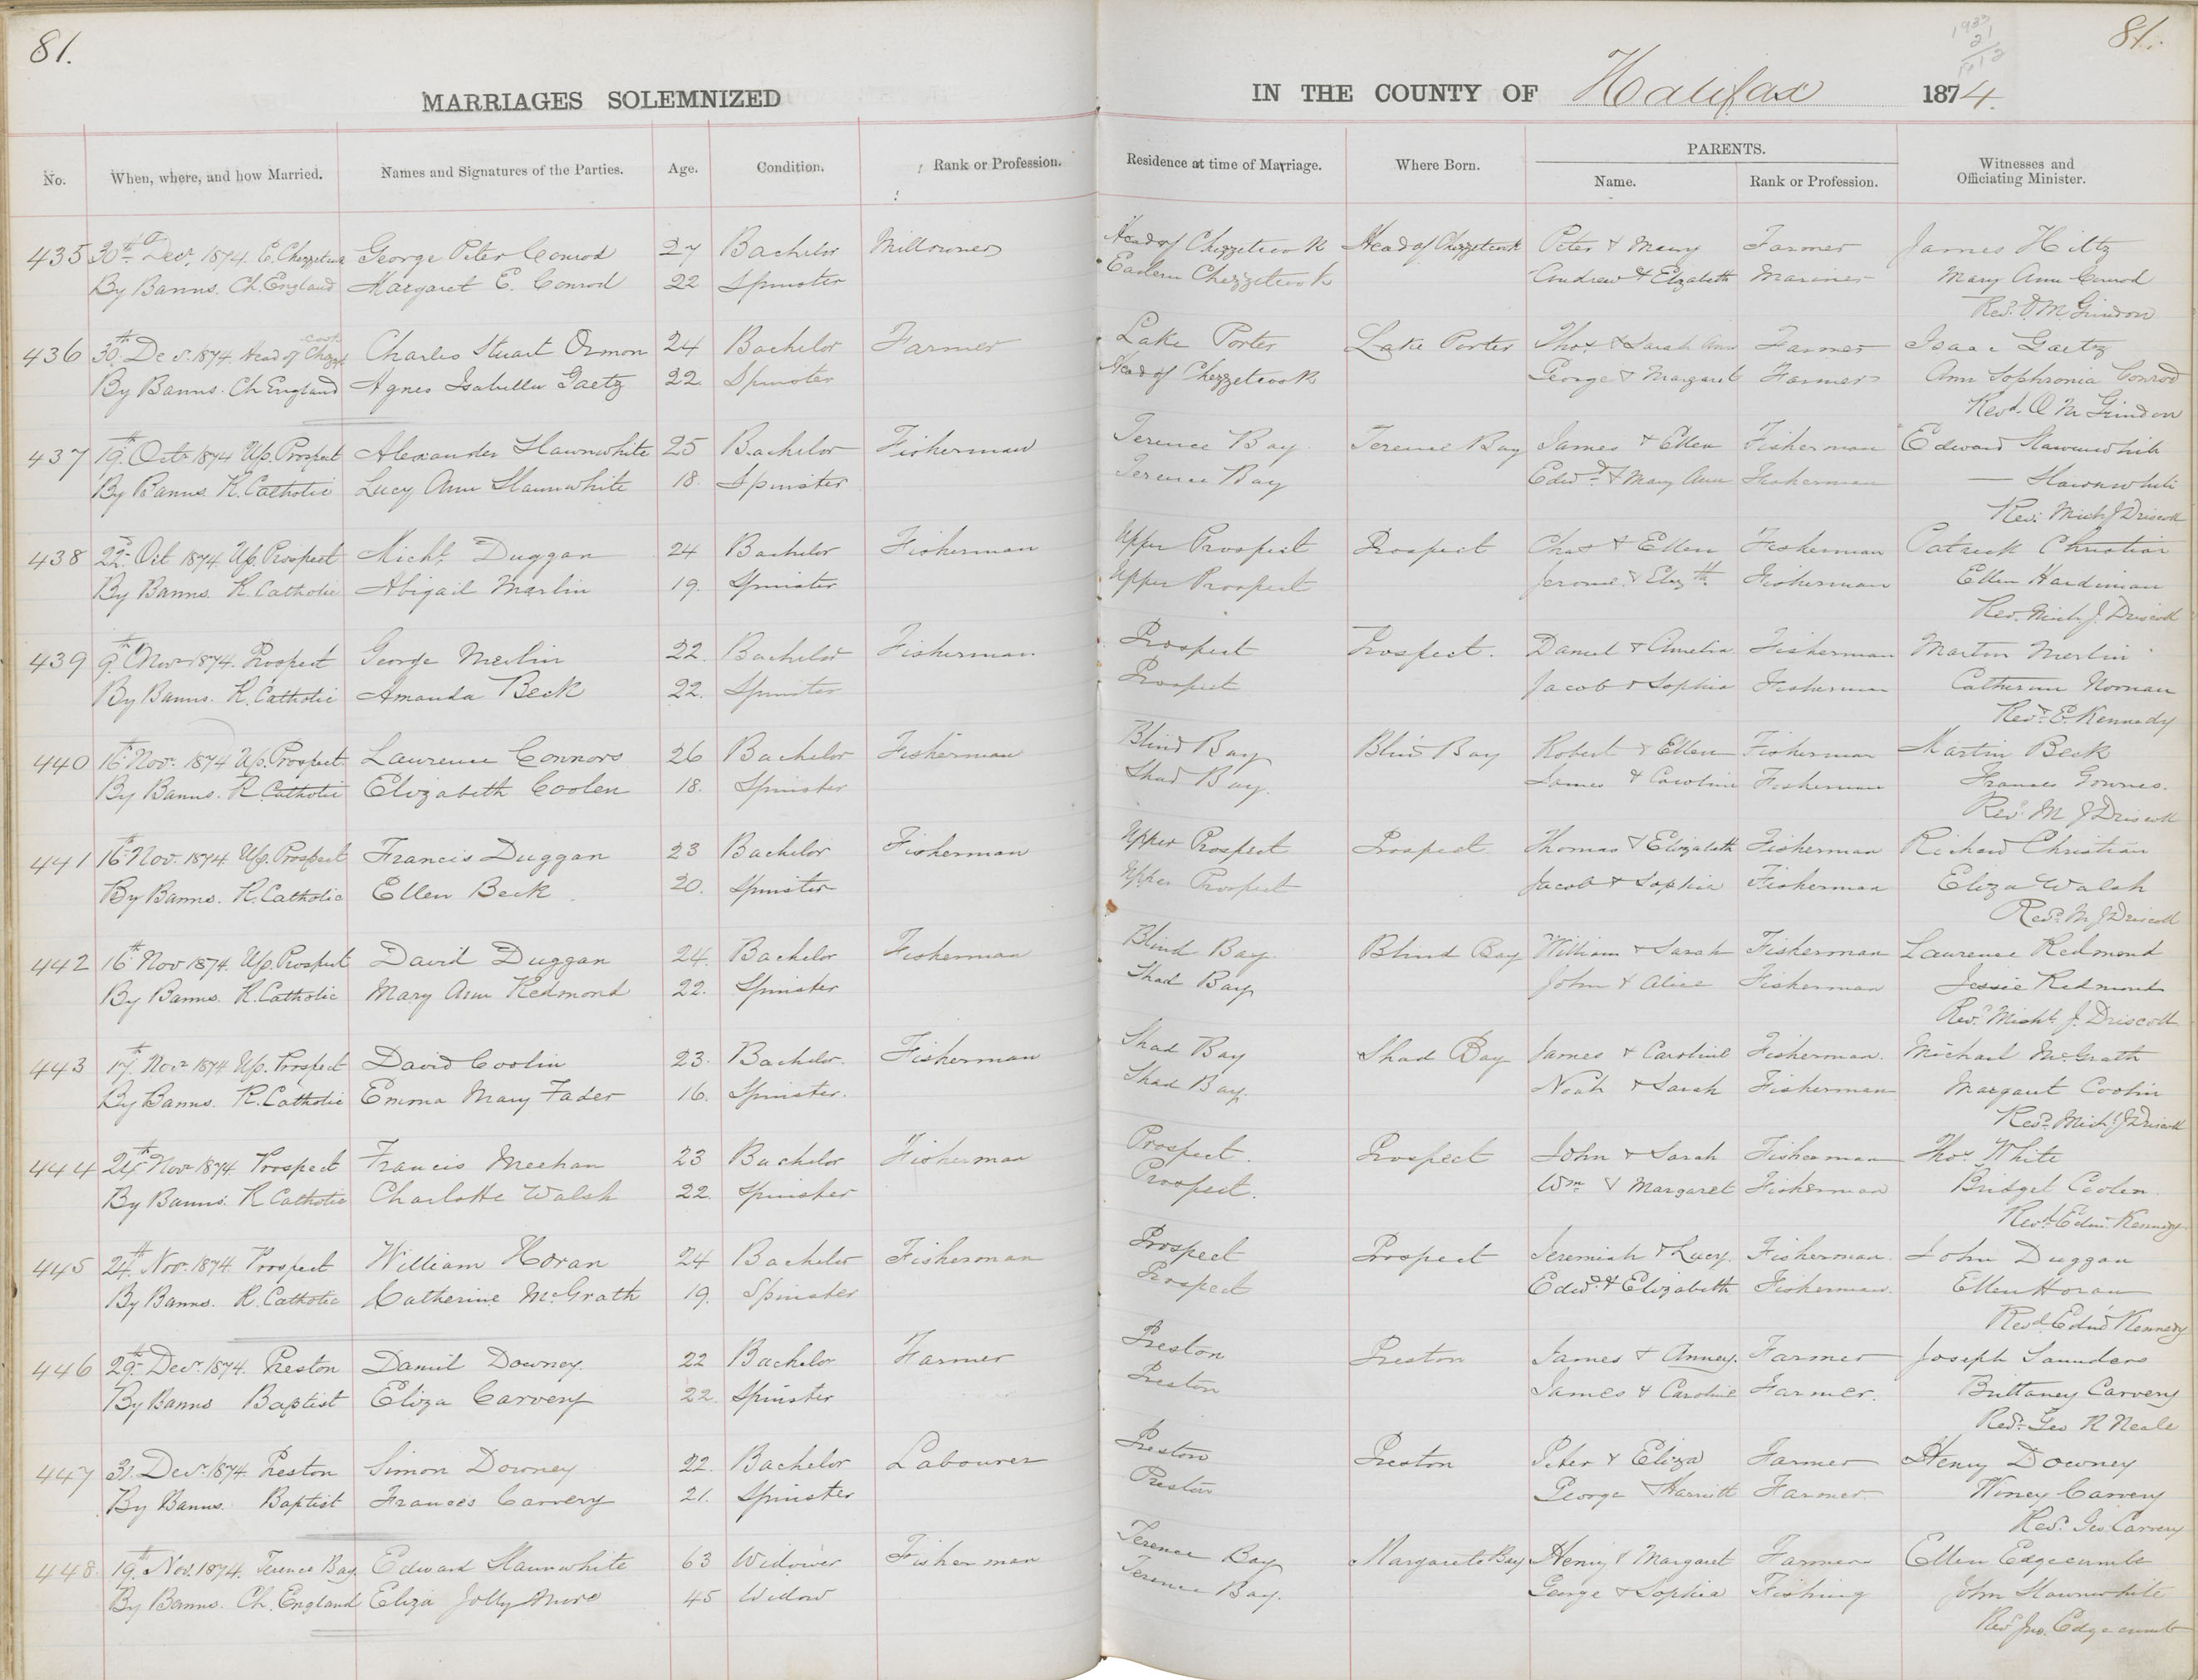 81.
81.
MARRIAGES SOLEMNIZED IN THE COUNTY OF Halifax 1874.
No. When, where, and how Married. Names and Signatures of the Parties. Age. Condition. Rank or Profession. Residence at time of Marriage. Where Born. PARENTS. Name. Rank or Profession. Witnesses and Officiating Minister.
435 30th Decr. 1874. E. Chezzetcook George Peter Conrod 27 Bachelor Millowner Head of Chezzetcook Head of Chezzetcook Peter & Mary Farmer James Hiltz
By Banns. Ch. England Margaret E. Conrod 22 Spinster Eastern Chezzetcook Andrew & Elizabeth Mariner Mary Ann Conrod
Revd. O. M. Grindon
436 30th Decr. 1874. Head of Chezzetcook Charles Stuart Ormon 24 Bachelor Farmer Lake Porter Lake Porter Thos. & Sarah Ann Farmer Isaac Gaetz
By Banns. Ch England Agnes Isabella Gaetz 22. Spinster Head of Chezzetcook George & Margaret Farmer Ann Sophronia Conrod
Revd. O M Grindon
437 19th Octr 1874 Up. Prospect Alexander Slawnwhite 25 Bachelor Fisherman Terence Bay Terence Bay James & Ellen Fisherman Edward Slawnwhite
By Banns. R. Catholic Lucy Ann Slaunwhite 18. Spinster Terence Bay Edwd. & Mary Ann Fisherman — Slawnwhite
Rev. Mich J Driscoll
438 22d Oct 1874 Up. Prospect Michl. Duggan 24 Bachelor Fisherman Upper Prospect Prospect Chas & Ellen Fisherman Patrick Christian
By Banns. R. Catholic Abigail Marlin 19. Spinster Upper Prospect Jerome & Elizth. Fisherman Ellen Hardiman
Rev. Mich J. Driscoll
439 9th Novr 1874. Prospect George Merlin 22. Bachelor Fisherman Prospect Prospect. Daniel & Amelia Fisherman Martin Merlin
By Banns. R. Catholic Amanda Beck 22. Spinster Prospect Jacob & Sophia Fisherman Catherine Noonan
Revd. E. Kennedy
440 16th Nov. 1874 Up. Prospect Laurence Connors 26 Bachelor Fisherman Blind Bay Blind Bay Robert & Ellen Fisherman Martin Beck
By Banns. R. Catholic Elizabeth Coolen 18. Spinster Shad Bay. James & Caroline Fisherman Frances Gownes.
Revd. M J Driscoll
441 16th Nov. 1874 Up. Prospect Francis Duggan 23 Bachelor Fisherman Upper Prospect Prospect Thomas & Elizabeth Fisherman Richard Christian
By Banns. R. Catholic Ellen Beck 20. Spinster Upper Prospect Jacob & Sophia Fisherman Eliza Walsh
Revd. M J Driscoll
442 16th Nov 1874. Up. Prospect David Duggan 24. Bachelor Fisherman Blind Bay Blind Bay William & Sarah Fisherman Laurence Redmond
By Banns. R. Catholic Mary Ann Redmond 22. Spinster Shad Bay John & Alice Fisherman Jessie Redmond
Revd. Michl J. Driscoll
443 17th Novr 1874 Up. Prospect David Coolin 23. Bachelor. Fisherman Shad Bay Shad Bay James & Caroline Fisherman. Michael McGrath
By Banns. R. Catholic Emma Mary Fader 16. Spinster. Shad Bay. Noah & Sarah Fisherman Margaret Coolin
Revd. Michl J Driscoll
444 24th Novr 1874. Prospect Francis Meehan 23 Bachelor Fisherman Prospect. Prospect John & Sarah Fisherman Thos. White
By Banns. R Catholic Charlotte Walsh 22. Spinster Prospect. Wm & Margaret Fisherman Bridget Coolen
Revd. Edw. Kennedy
445 24th Nov. 1874 Prospect William Horan 24 Bachelor Fisherman Prospect Prospect Jeremiah & Lucy. Fisherman John Duggan
By Banns. R. Catholic Catherine McGrath 19. Spinster Prospect Edwd. & Elizabeth Fisherman. Ellen Horan
Revd. Edwd Kennedy
446 29th Decr. 1874. Preston Daniel Downey. 22 Bachelor Farmer Preston Preston James & Anney. Farmer Joseph Saunders
By Banns Baptist Eliza Carvery 22. Spinster Preston James & Caroline Farmer. Brittaney Carvery
Revd. Geo R Neale
447 31. Decr. 1874. Preston Simon Downey 22. Bachelor Labourer Preston Preston Peter & Eliza Farmer Henry Downey
By Banns. Baptist Frances Carvery 21. Spinster Preston George & Harriett Farmer Winey Carvery
Revd. Geo. Carvery
448 19th Nov. 1874. Terence Bay. Edward Slaunwhite 63 Widower Fisherman Terence Bay Margarets Bay Henry & Margaret Farmer Ellen Edgecumbe
By Banns. Ch. England Eliza Jollymure 45 Widow Terence Bay. George & Sophia Fishing John Slaunwhite
Revd Jno. Edgecumbe